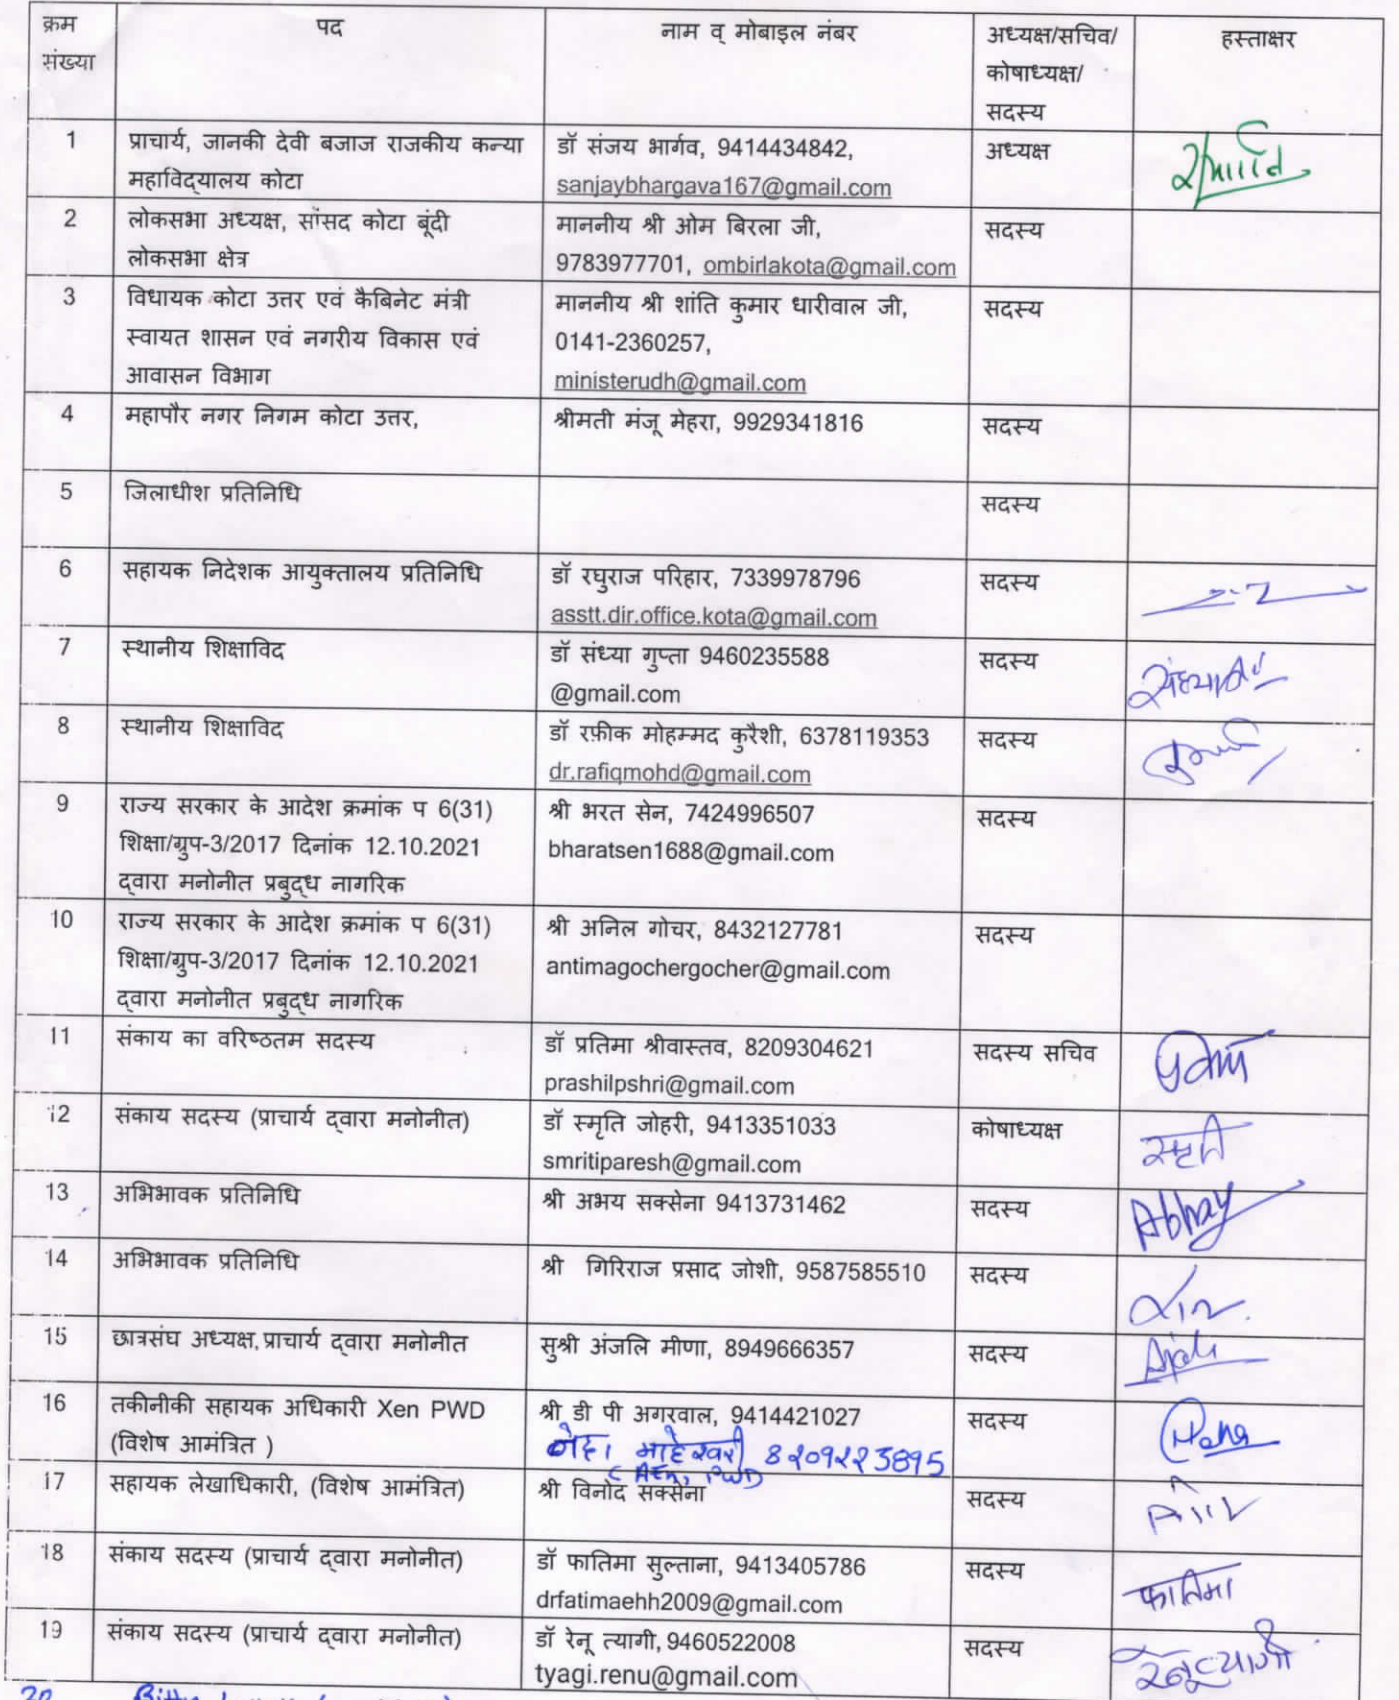 क्रम
संख्या
पद
नाम व् मोबाइल नंबर
अध्यक्ष/सचिव/
कोषाध्यक्ष/
सदस्य
हस्ताक्षर
1
प्राचार्य, जानकी देवी बजाज राजकीय कन्या
महाविद्यालय कोटा
डॉ संजय भार्गव, 9414434842,
sanjaybhargava167@gmail.com
अध्यक्ष
2
लोकसभा अध्यक्ष, सांसद कोटा बूंदी
लोकसभा क्षेत्र
माननीय श्री ओम बिरला जी,
9783977701, ombirlakota@gmail.com
सदस्य
3
विधायक कोटा उत्तर एवं कैबिनेट मंत्री
स्वायत शासन एवं नगरीय विकास एवं
आवासन विभाग
माननीय श्री शांति कुमार धारीवाल जी,
0141-2360257,
ministerudh@gmail.com
सदस्य
4
महापौर नगर निगम कोटा उत्तर,
श्रीमती मंजू मेहरा, 9929341816
सदस्य
5
जिलाधीश प्रतिनिधि
सदस्य
6
सहायक निदेशक आयुक्तालय प्रतिनिधि
डॉ रघुराज परिहार, 7339978796
asstt.dir.office.kota@gmail.com
सदस्य
7
स्थानीय शिक्षाविद
डॉ संध्या गुप्ता 9460235588
@gmail.com
सदस्य
8
स्थानीय शिक्षाविद
डॉ रफ़ीक मोहम्मद कुरैशी, 6378119353
dr.rafiqmohd@gmail.com
सदस्य
9
राज्य सरकार के आदेश क्रमांक प 6(31)
शिक्षा/ग्रुप-3/2017 दिनांक 12.10.2021
द्वारा मनोनीत प्रबुद्ध नागरिक
श्री भरत सेन, 7424996507
bharatsen1688@gmail.com
सदस्य
10
राज्य सरकार के आदेश क्रमांक प 6(31)
शिक्षा/ग्रुप-3/2017 दिनांक 12.10.2021
द्वारा मनोनीत प्रबुद्ध नागरिक
श्री अनिल गोचर, 8432127781
antimagochergocher@gmail.com
सदस्य
11
संकाय का वरिष्ठतम सदस्य
डॉ प्रतिमा श्रीवास्तव, 8209304621
prashilpshri@gmail.com
सदस्य सचिव
12
संकाय सदस्य (प्राचार्य द्वारा मनोनीत)
डॉ स्मृति जोहरी, 9413351033
smritiparesh@gmail.com
कोषाध्यक्ष
स्मृति
13
अभिभावक प्रतिनिधि
श्री अभय सक्सेना 9413731462
सदस्य
Abhay
14
अभिभावक प्रतिनिधि
श्री गिरिराज प्रसाद जोशी, 9587585510
सदस्य
15
छात्रसंघ अध्यक्ष, प्राचार्य द्वारा मनोनीत
सुश्री अंजलि मीणा, 8949666357
सदस्य
16
तकीनीकी सहायक अधिकारी Xen PWD
(विशेष आमंत्रित )
श्री डी पी अगरवाल, 9414421027
नेहा माहेश्वरी 8209223895
(AEn, PWD)
सदस्य
Neha
17
सहायक लेखाधिकारी, (विशेष आमंत्रित)
श्री विनोद सक्सेना
सदस्य
18
संकाय सदस्य (प्राचार्य द्वारा मनोनीत)
डॉ फातिमा सुल्ताना, 9413405786
drfatimaehh2009@gmail.com
सदस्य
फातिमा
19
संकाय सदस्य (प्राचार्य द्वारा मनोनीत)
डॉ रेनू त्यागी, 9460522008
tyagi.renu@gmail.com
सदस्य
रेनू त्यागी
20